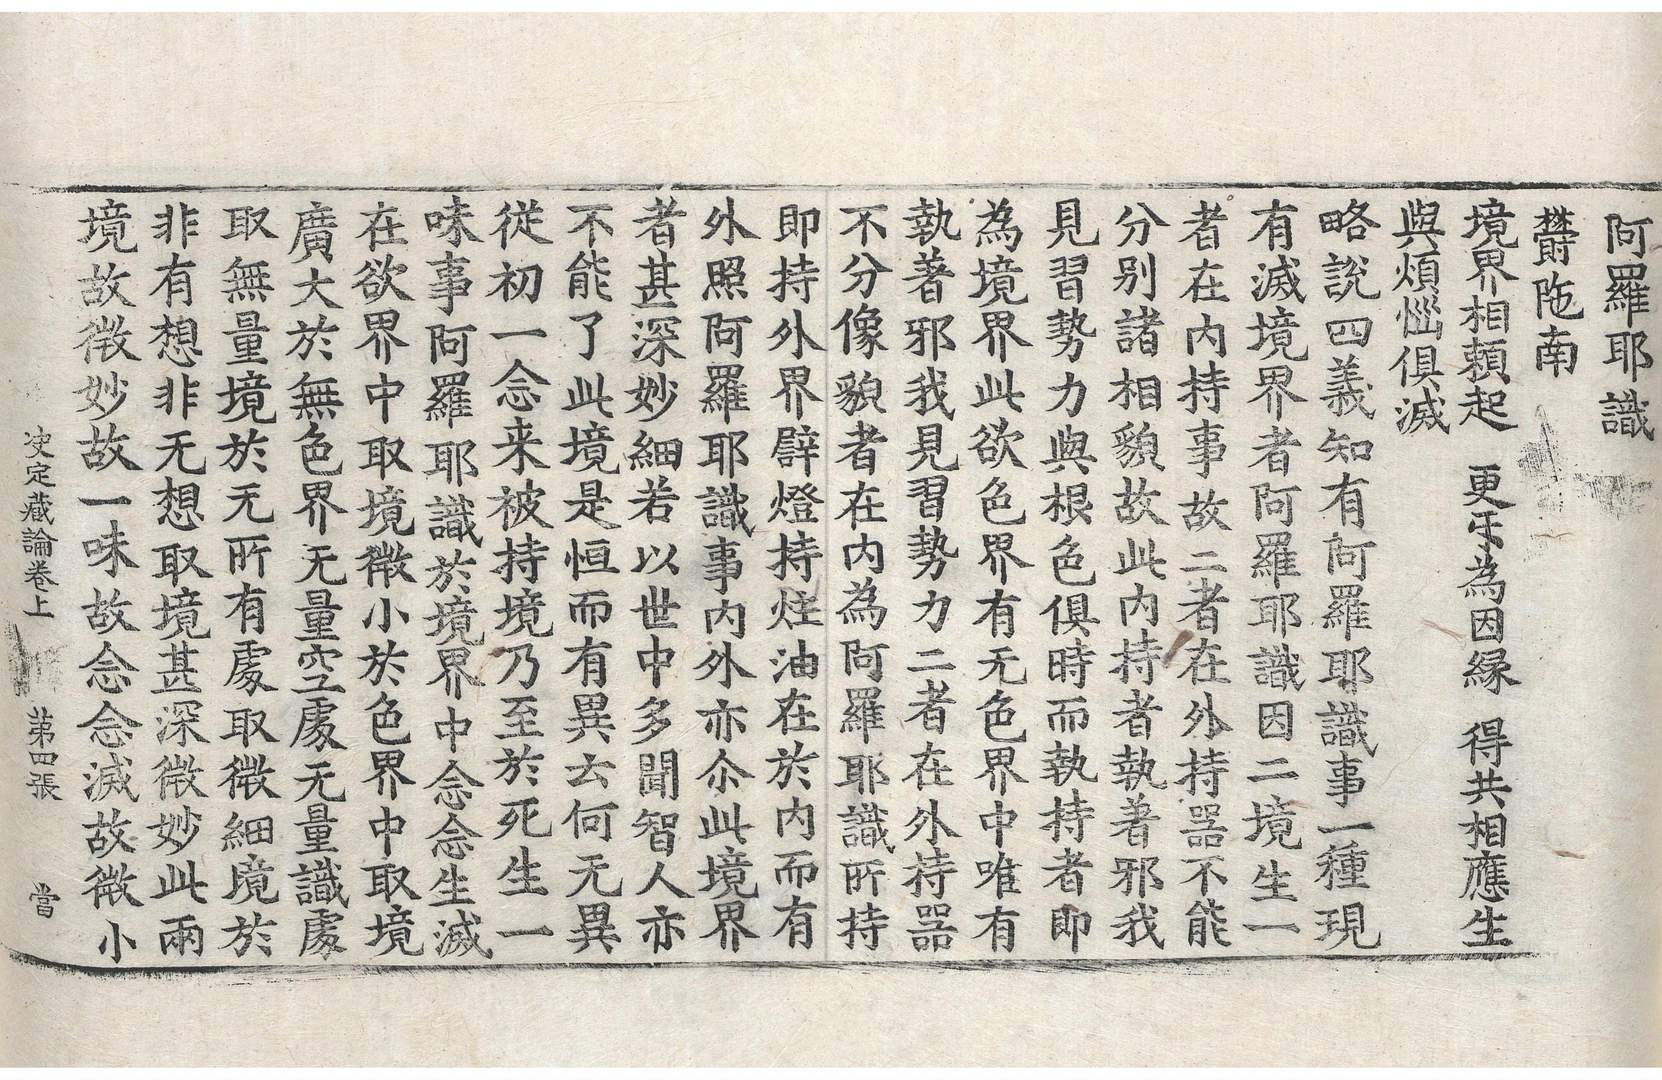 阿羅耶識
欝陁南
境界相頼起　更𭅺為因縁　得共相應生
與煩惱俱滅
略說四義知有阿羅耶識事一種現
有滅境界者阿羅耶識因二境生一
者在内持事故二者在外持器不能
分別諸相貌故此内持者執著邪我
見習勢力與根色俱時而執持者即
為境界此欲色界有无色界中唯有
執著邪我見習勢力二者在外持器
不分像貌者在内為阿羅耶識所持
即持外界譬燈持炷油在於内而有
外照阿羅耶識事内外亦尒此境界
者甚深妙細若以世中多聞智人亦
不能了此境是恒而有異去何无異
從初一念来被持境乃至於死生一
味事阿羅耶識於境界中念念生滅
在欲界中取境微小於色界中取境
廣大於無色界无量空處无量識處
取無量境於无所有處取微細境於
非有想非无想取境甚深微妙此兩
境故微妙故一味故念念滅故微小
決定藏論卷上　第四張　當